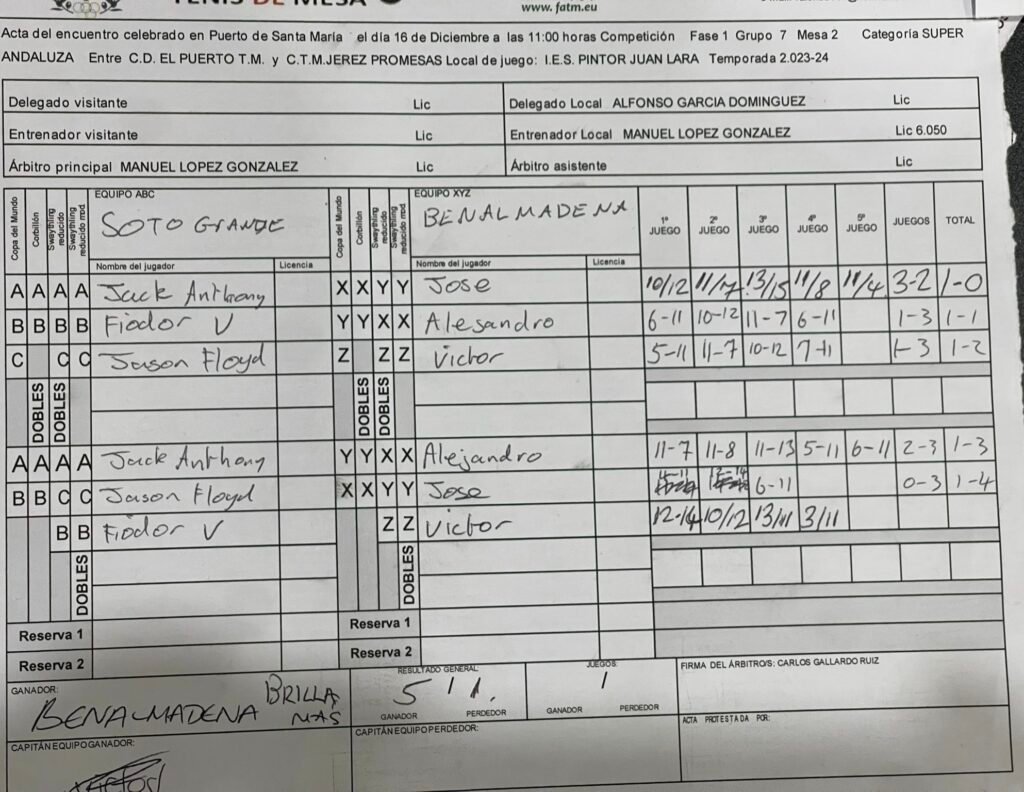 TENIS DE MESA
www. fatm.eu
Acta del encuentro celebrado en Puerto de Santa María el día 16 de Diciembre a las 11:00 horas Competición Fase 1 Grupo 7 Mesa 2 Categoría SUPER
ANDALUZA Entre C.D. EL PUERTO T.M. y C.T.M.JEREZ PROMESAS Local de juego: I.E.S. PINTOR JUAN LARA Temporada 2.023-24
Delegado visitante Lic Delegado Local ALFONSO GARCIA DOMINGUEZ Lic
Entrenador visitante Lic Entrenador Local MANUEL LOPEZ GONZALEZ Lic 6.050
Árbitro principal MANUEL LOPEZ GONZALEZ Lic Árbitro asistente Lic
Copa del Mundo Corbillón Swaythling reducido Swaythling reducido mod. EQUIPO ABC Copa del Mundo Corbillón Swaythling reducido Swaythling reducido mod. EQUIPO XYZ
SOTO GRANDE BENALMADENA 1º JUEGO 2º JUEGO 3º JUEGO 4º JUEGO 5º JUEGO JUEGOS TOTAL
Nombre del jugador Licencia Nombre del jugador Licencia
A A A A Jack Anthony X X Y Y Jose 10/12 11/ 13/15 11/8 11/4 3-2 1-0
B B B B Fiodor V Y Y X X Alesandro 6-11 10-12 11-7 6-11 1-3 1-1
C C C Jason Floyd Z Z Z Victor 5-11 11-7 10-12 7-11 1-3 1-2
DOBLES DOBLES DOBLES DOBLES
A A A A Jack Anthony Y Y X X Alejandro 11-7 11-8 11-13 5-11 6-11 2-3 1-3
B B C C Jason Floyd X X Y Y Jose 12-14 6-11 0-3 1-4
B B Fiodor V Z Z Victor 12-14 10/12 13/11 3/11
DOBLES DOBLES
Reserva 1 Reserva 1
Reserva 2 Reserva 2
GANADOR: RESULTADO GENERAL JUEGOS: FIRMA DEL ÁRBITRO/S: CARLOS GALLARDO RUIZ
BENALMADENA BRILLA MAS 5 1 1
GANADOR PERDEDOR GANADOR PERDEDOR
CAPITÁN EQUIPO GANADOR: CAPITÁN EQUIPO PERDEDOR: ACTA PROTESTADA POR: